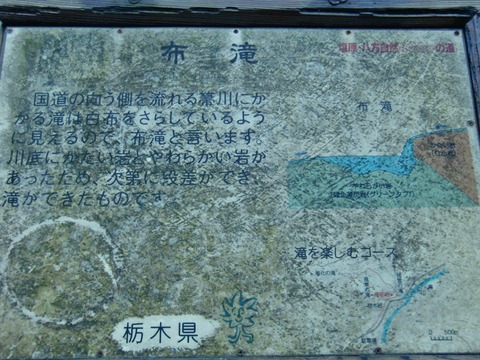 布 滝
塩原・八方自然 の道
国道の向う側を流れる箒川にか
かる滝は白布をさらしているよう
に見えるので、布滝と言います。
川底にかたい岩とやわらかい岩が
あったため、次第に段差ができ、
滝ができたものです。
布 滝
滝を楽しむコース
0 500m
栃木県